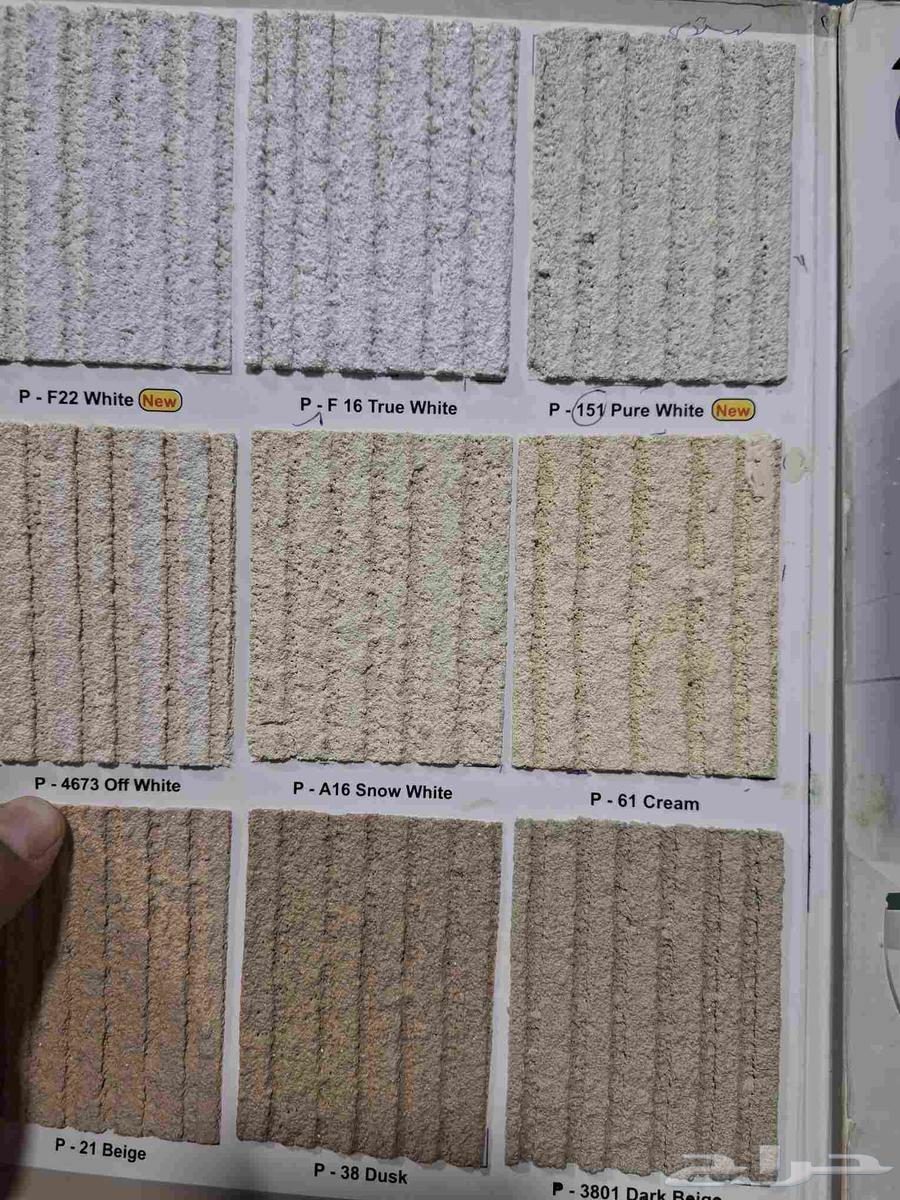 P - F22 White New
P - F 16 True White
P - 151 Pure White New
P - 4673 Off White
P - A16 Snow White
P - 61 Cream
P - 21 Beige
P - 38 Dusk
P - 3801 Dark Beige
حراج